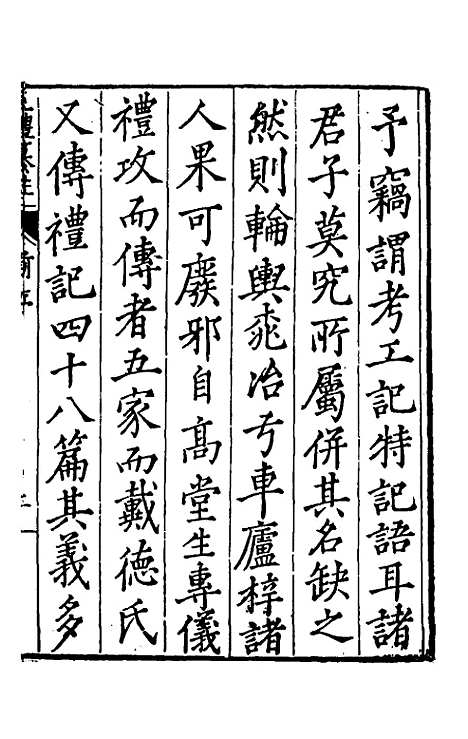 予竊謂考工記特記語耳諸
君子莫究所屬併其名缺之
然則輪輿桃冶弓車廬梓諸
人果可廢邪自高堂生專儀
禮攻而傳者五家而戴德氏
又傳禮記四十八篇其義多